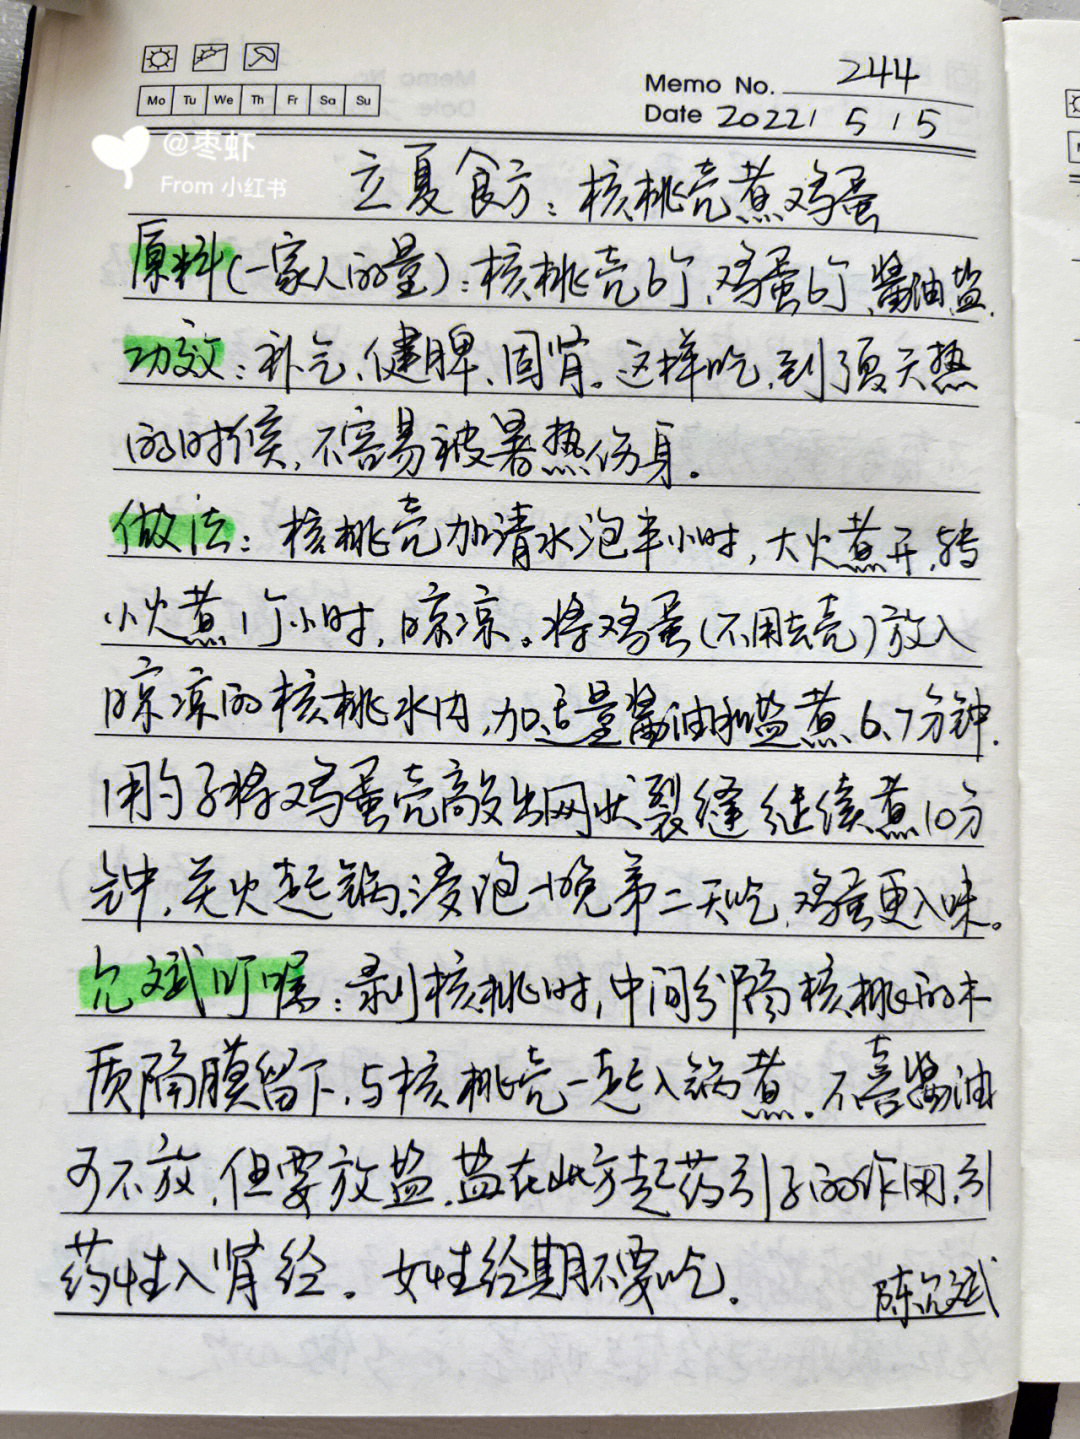 Mo Tu We Th Fr Sa Su
Memo No. 244
Date 2022 / 5 / 5
@枣虾
From 小红书
立夏食方：核桃壳煮鸡蛋
原料(一家人的量)：核桃壳6个、鸡蛋6个、酱油、盐.
功效：补气、健脾、固肾。这样吃,到了夏天热
的时候,不容易被暑热伤身.
做法：核桃壳加清水泡半小时,大火煮开,转
小火煮1个小时,晾凉。将鸡蛋(不用去壳)放入
晾凉的核桃水内,加适量酱油和盐煮6、7分钟.
用勺子将鸡蛋壳敲出网状裂缝继续煮10分
钟,关火起锅.浸泡一晚第二天吃,鸡蛋更入味。
允斌叮嘱：剥核桃时,中间分隔核桃的木
质隔膜留下,与核桃壳一起入锅煮.不喜酱油
可不放,但要放盐.盐在此方起药引子的作用,引
药性入肾经.女性经期不要吃.
陈允斌